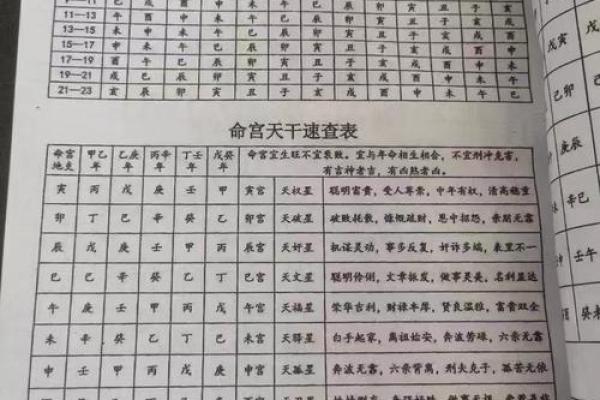 11—13 午 酉 申 未 午 巳 辰 卯 寅 丑 子 亥 戌
13—15 未 申 未 午 巳 辰 卯 寅 丑 子 亥 戌 酉
15—17 申 未 午 巳 辰 卯 寅 丑 子 亥 戌 酉 申
17—19 酉 午 巳 辰 卯 寅 丑 子 亥 戌 酉 申 未
19—21 戌 巳 辰 卯 寅 丑 子 亥 戌 酉 申 未 午
21—23 亥 辰 卯 寅 丑 子 亥 戌 酉 申 未 午 巳
命宫天干速查表
命宫地支 甲乙年 乙庚年 丙辛年 丁壬年 戊癸年 命宫宜生旺不宜衰败。宜与年命相生相合，不宜刑冲克害，
有吉神者吉，有凶煞者凶。
寅 丙 戊 庚 壬 甲 寅宫 天权星 聪明富贵，受人尊崇，中年有权，清高稳重
卯 丁 己 辛 癸 乙 卯宫 天破星 破败耗散，慷慨疏财，恩中招怨，亲朋无靠
辰 戊 庚 壬 甲 丙 辰宫 天奸星 机谋灵动，事多反复，奸诈多端，表里不一
巳 己 辛 癸 乙 丁 巳宫 天文星 聪明伶俐，文章振发，做事灵美，名利显达
午 庚 壬 甲 丙 戊 午宫 天福星 荣华吉利，财禄丰厚，贤良温雅，富贵双全
未 辛 癸 乙 丁 己 未宫 天驿星 白手起家，离祖始安，奔波劳碌，六亲无靠
申 壬 甲 丙 戊 庚 申宫 天孤星 奔波无靠，六亲背离，刑夫克子，孤苦无依
戊寅
己卯
庚辰
辛巳
壬午